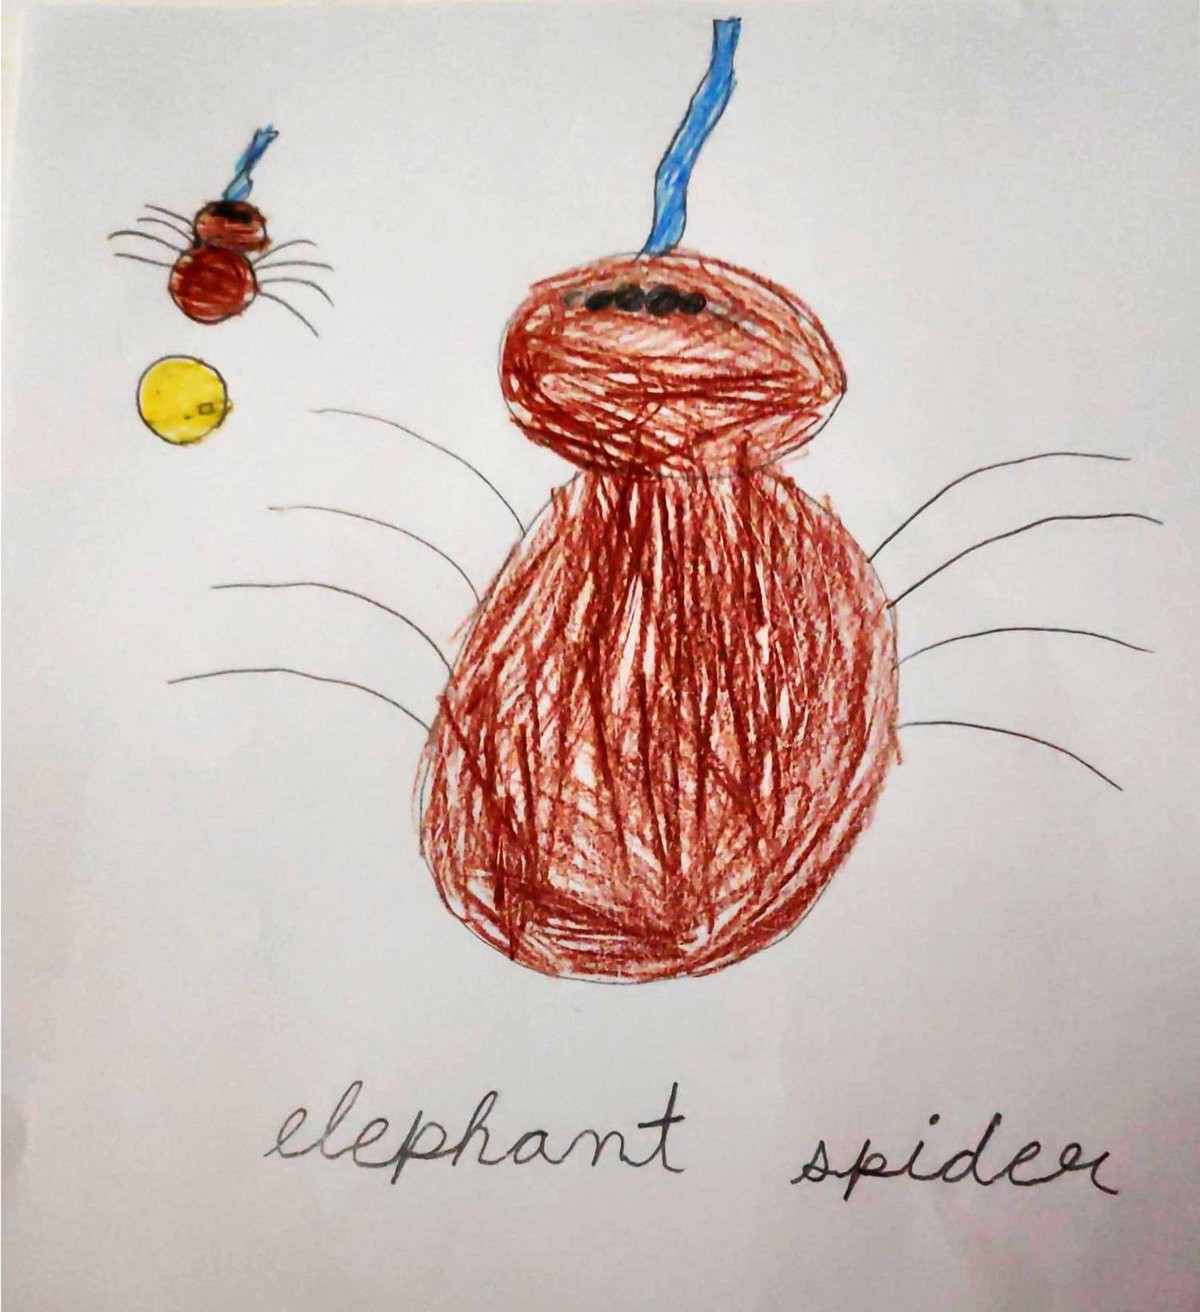 elephant spider